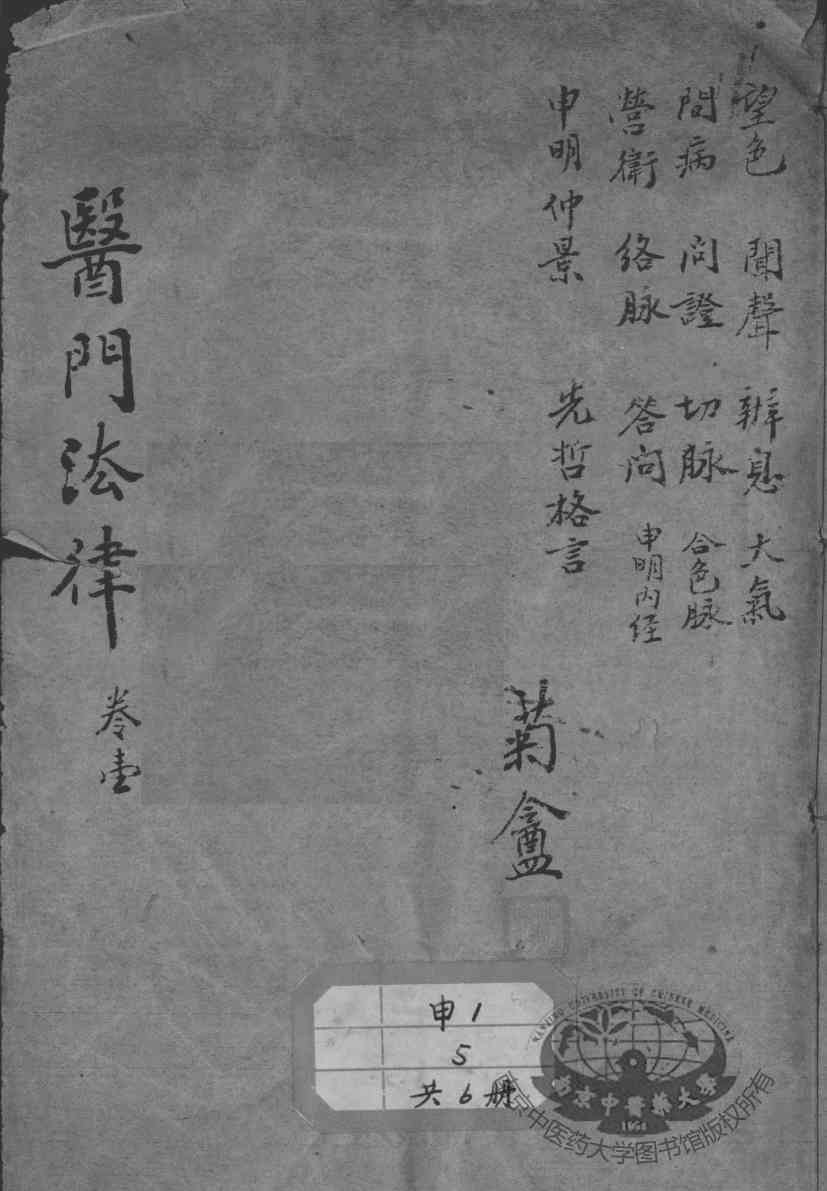 望色　聞聲　辨息　大氣
問病　問證　切脉　合色脉
營衛　絡脉　答問　申明內经
申明仲景　先哲格言
菊盦
醫門法律　卷壹
申1
5
共6册
NANJING UNIVERSITY OF CHINESE MEDICINE
南京中醫藥大學
1954
南京中医药大学图书馆版权所有